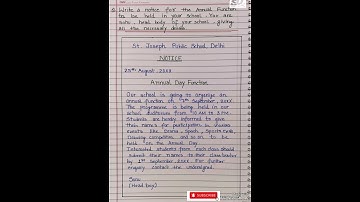 Q. Write a notice for the Annual Function
to be held in your school. You are
Sonu, head boy of your school, giving
all the necessary details.
St. Joseph Public School, Delhi
NOTICE
25th August, 20XX
Annual Day Function
Our school is going to organize an
annual function on 7th September, 20XX.
The programme is being held in our
school auditorium from 10 AM to 3 PM.
Students are hereby informed to give
their names for participation in diverse
events like Drama, Speech, Sports, Dance,
Drawing competition and so on to be
held on the Annual Day.
Interested students from each class should
submit their names to their class teacher
by 1st September, 20XX. For further
enquiry contact the undersigned.
Sonu
(Head boy)
SUBSCRIBE